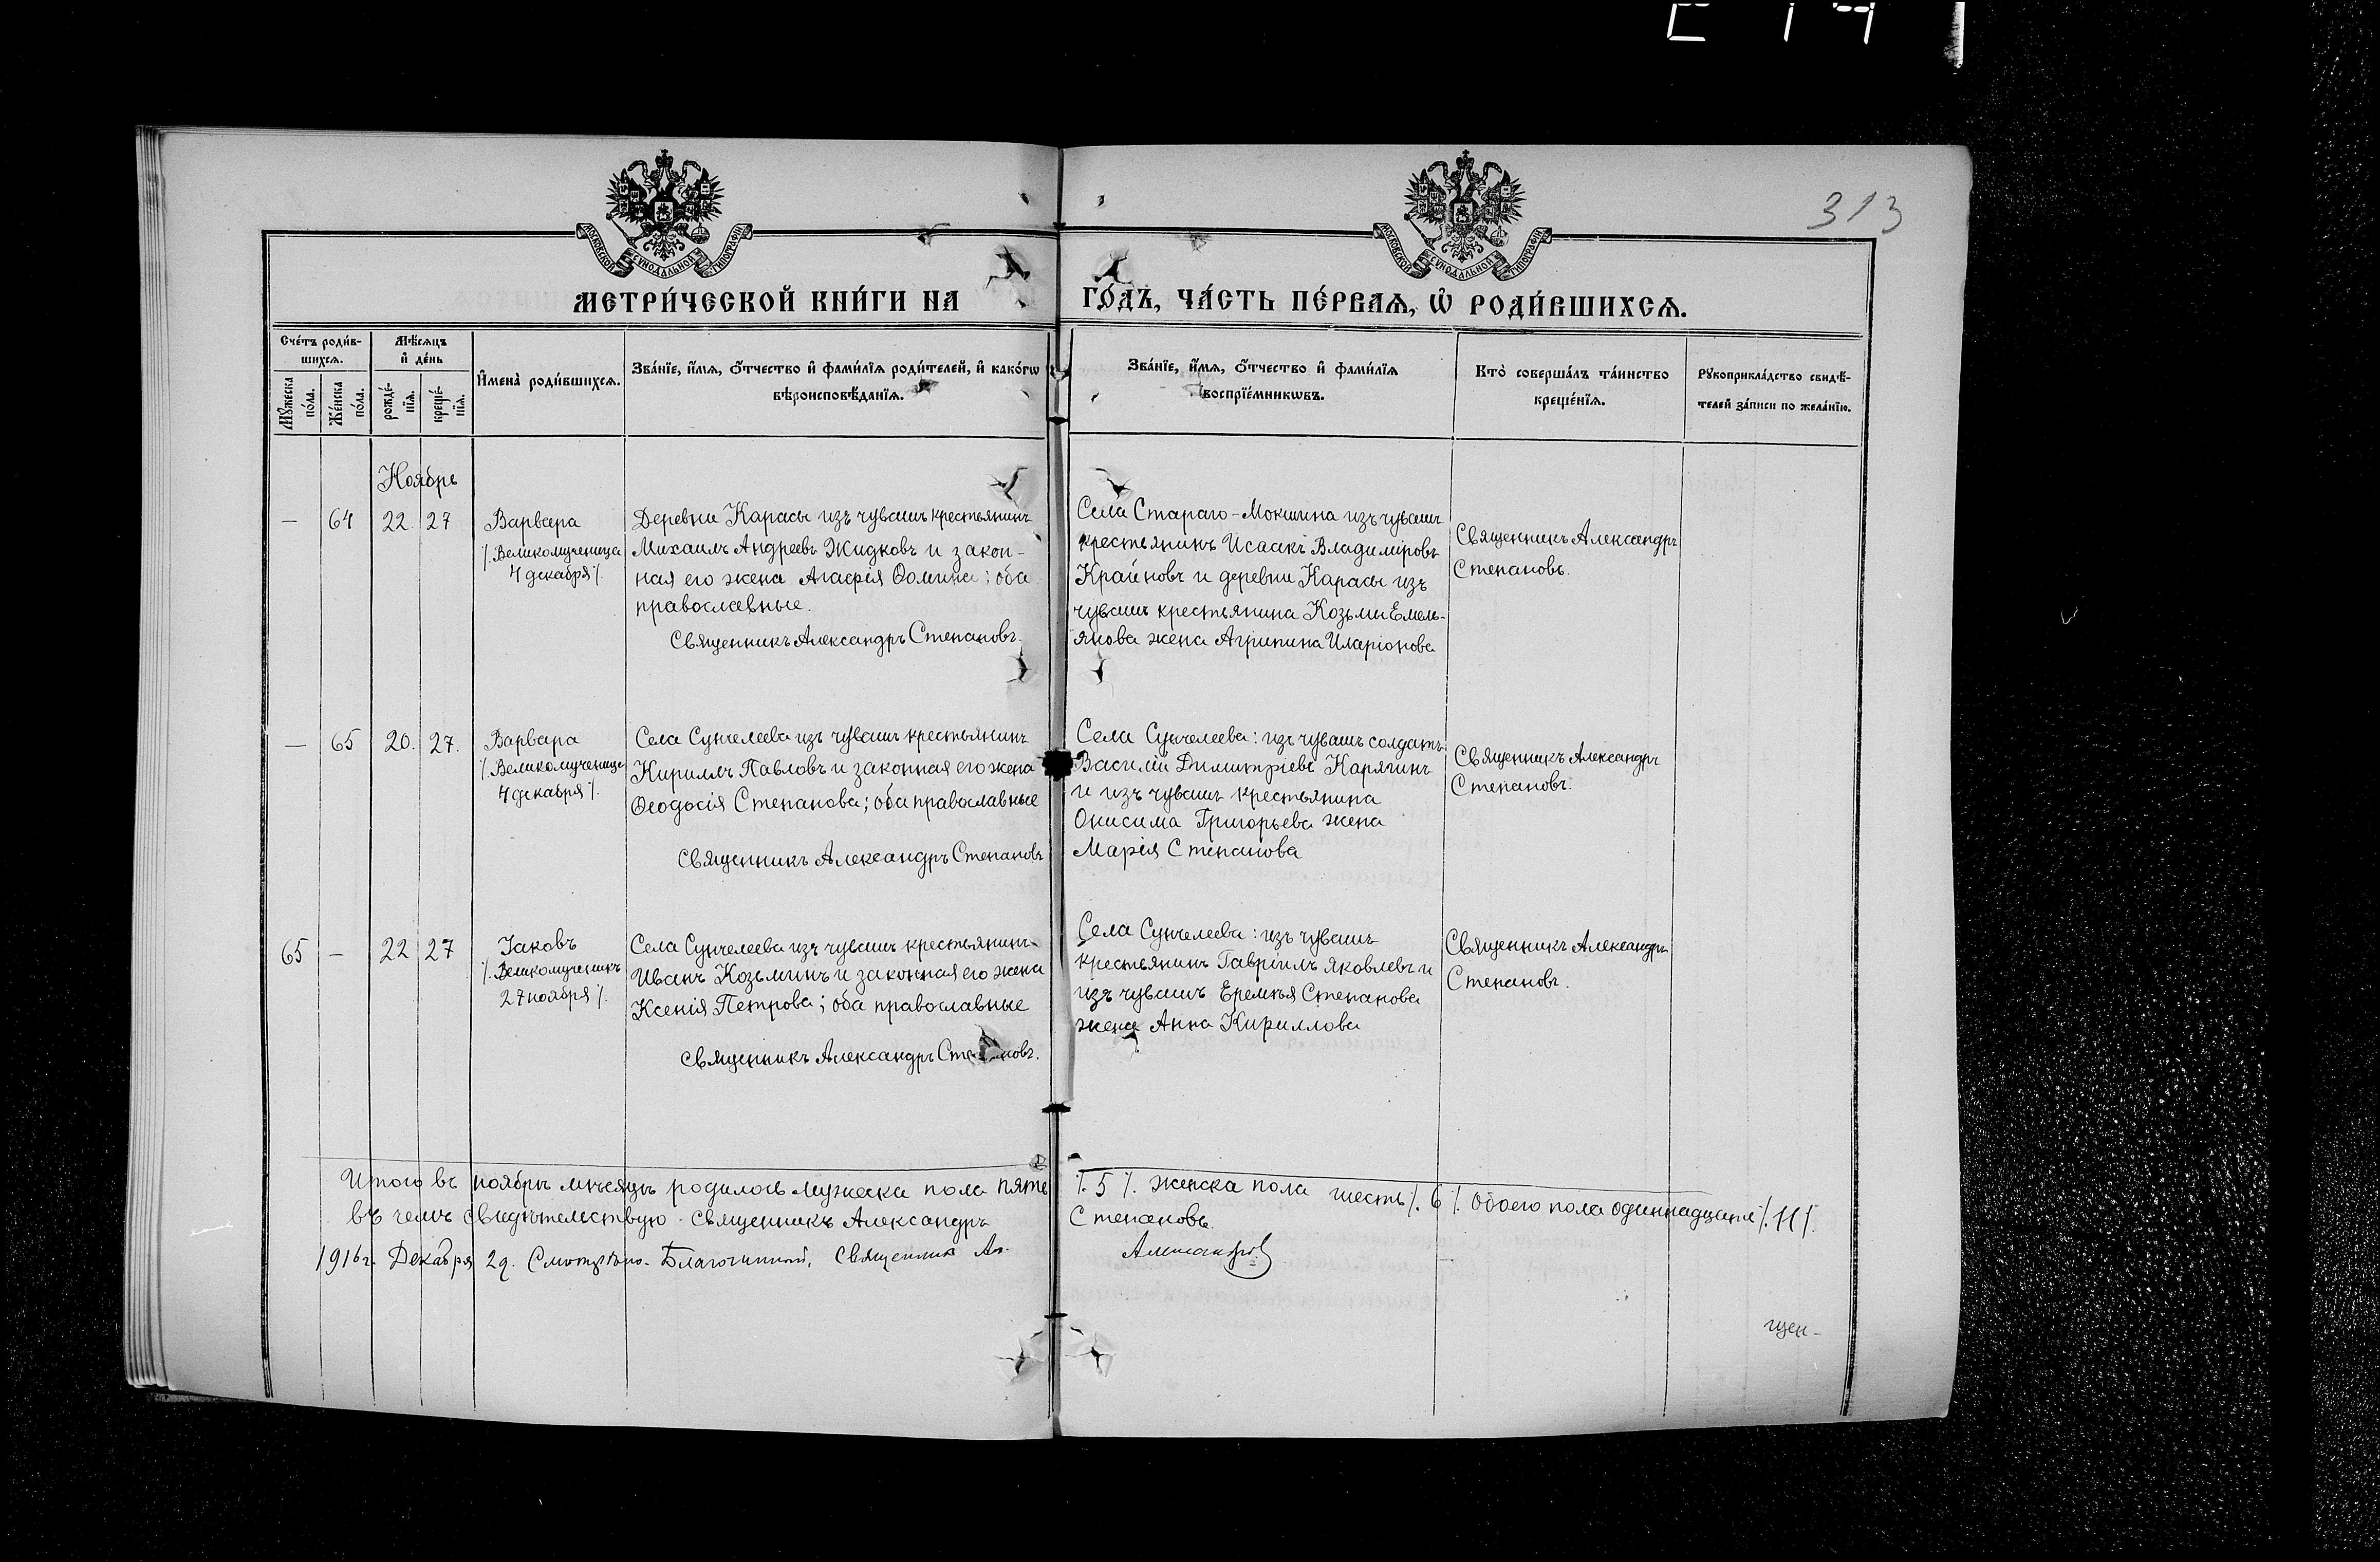 313
МОСКОВСКОЙ СѴНОДАЛЬНОЙ ТИПОГРАФІИ
МОСКОВСКОЙ СѴНОДАЛЬНОЙ ТИПОГРАФІИ
МЕТРИ́ЧЕСКОЙ КНИ́ГИ НА ГО́ДЪ, ЧА́СТЬ ПЕ́РВАѦ, Ѽ РОДИ́ВШИХСѦ.
Сче́тъ роди́в-
шихсѧ.
Мꙋ́жеска
по́ла.
Же́нска
по́ла.
Мѣ́сѧцъ
и҆ де́нь
рожде́-
нїѧ.
креще́-
нїѧ.
И҆мена̀ роди́вшихсѧ.
Зва́нїе, и҆́мѧ, ѻ҆́тчество и҆ фами́лїѧ роди́телей, и҆ како́гѡ
вѣроисповѣ́данїѧ.
Зва́нїе, и҆́мѧ, ѻ҆́тчество и҆ фами́лїѧ
воспрїе́мникѡвъ.
Кто̀ соверша́лъ та́инство
креще́нїѧ.
Рꙋкоприкла́дство свидѣ́-
телей за́писи по жела́нїю.
Ноябрь
— 64 22. 27
Варвара
/. Великомученица
4 декабря /.
Деревни Карасы изъ чувашъ крестьянинъ
Михаилъ Андреевъ Жидковъ и закон-
ная его жена Агаѳія Ѳомина; оба
православные.
Священникъ Александръ Степановъ.
Села Стараго-Мокшина изъ чувашъ
крестьянинъ Исаакъ Владиміровъ
Крайновъ и деревни Карасы изъ
чувашъ крестьянина Козьмы Емель-
янова жена Агрипина Иларіонова
Священникъ Александръ
Степановъ.
— 65 20. 27.
Варвара
/. Великомученица
4 декабря /.
Села Сунчелеева изъ чувашъ крестьянинъ
Кириллъ Павловъ и законная его жена
Ѳеодосія Степанова; оба православные
Священникъ Александръ Степановъ
Села Сунчелеева: изъ чувашъ солдатъ
Василій Димитріевъ Карягинъ
и изъ чувашъ крестьянина
Онисима Григорьева жена
Марія Степанова
Священникъ Александръ
Степановъ.
65 — 22 27
Іаковъ
/. Великомученикъ
27 ноября /.
Села Сунчелеева изъ чувашъ крестьянинъ
Иванъ Козьминъ и законная его жена
Ксенія Петрова; оба православные
Священникъ Александръ Степановъ.
Села Сунчелеева: изъ чувашъ
крестьянинъ Гавріилъ Яковлевъ и
изъ чувашъ Еремѣя Степанова
жена Анна Кириллова
Священникъ Александръ
Степановъ.
Итого въ ноябрѣ мѣсяцѣ родилось мужеска пола пять /. 5 /. женска пола шесть /. 6 /. Обоего пола одиннадцать /. 11 /.
въ чемъ свидѣтельствую Священникъ Александръ Степановъ.
1916 г. Декабря 2 д. Смотрѣно. Благочинный, Священник Ал. Александров
щен-